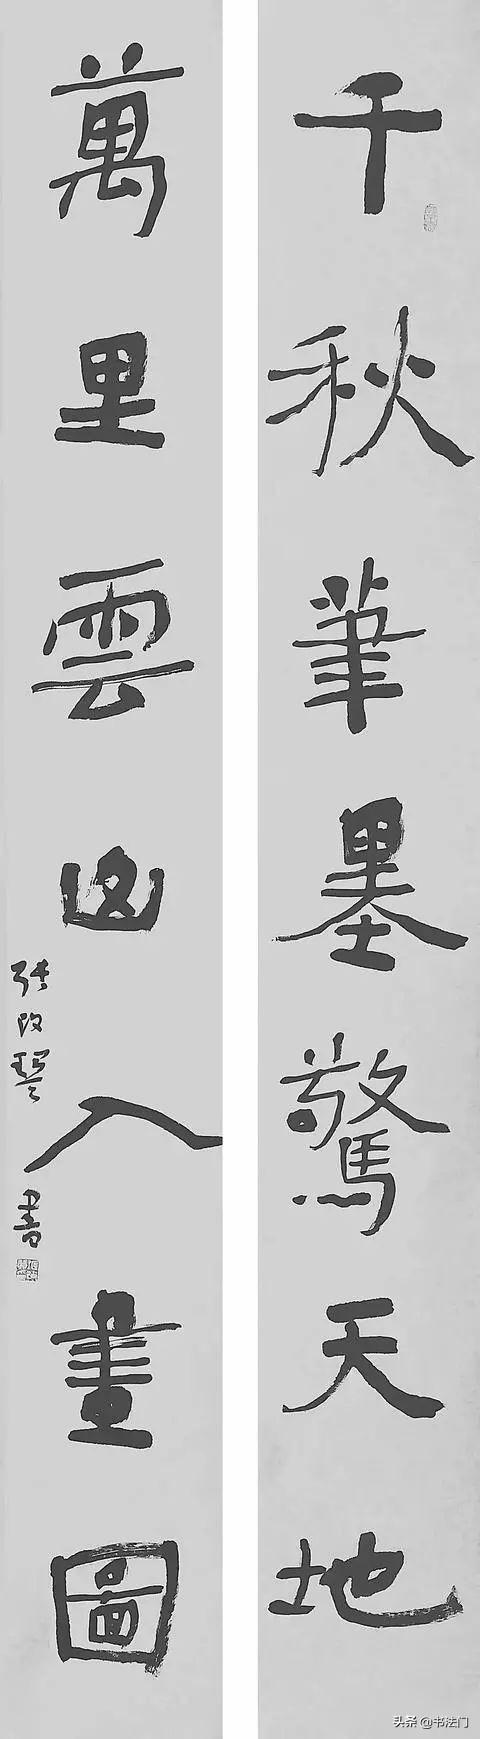 千秋筆墨驚天地
萬里雲山入畫圖
張改琴書
头条 @书法门